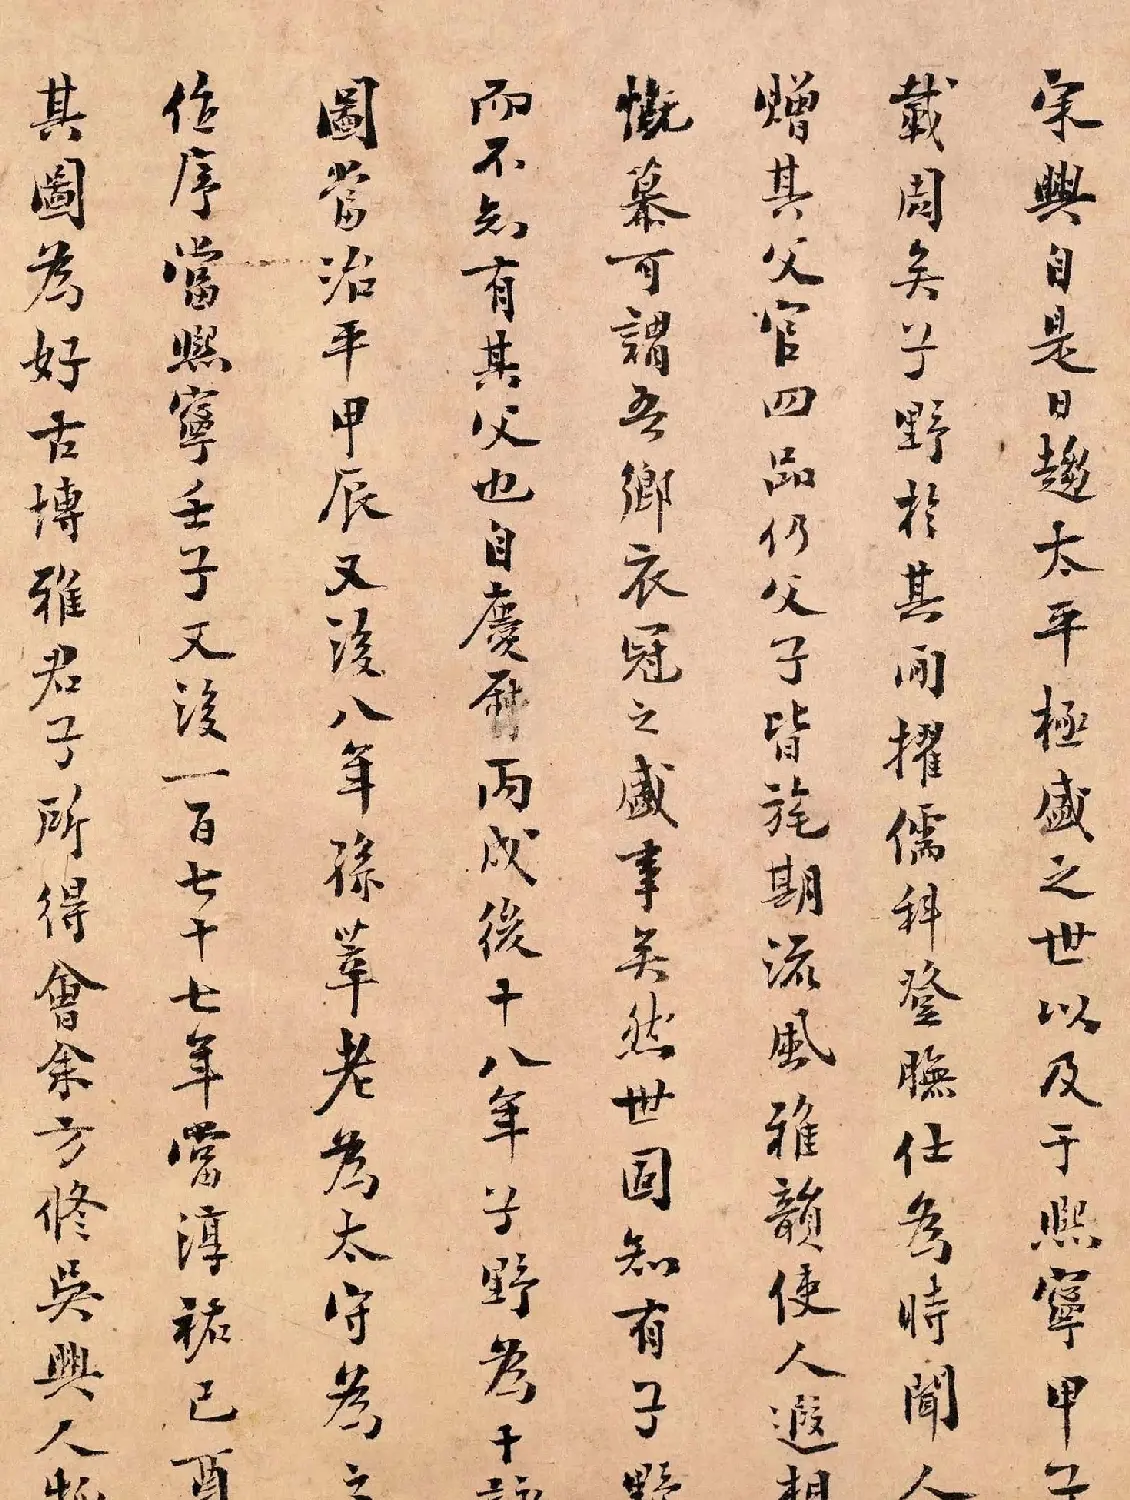 宋興自是日趨太平極盛之世以及于熙寧甲子
載周矣子野於其間擢儒科登膴仕為時聞人
贈其父官四品仍父子皆旄期流風雅韻使人遐想
慨慕可謂吾鄉衣冠之盛事矣然世固知有子野
而不知有其父也自慶曆丙戌後十八年子野為十詠
圖當治平甲辰又後八年孫莘老為太守為之
位序當熙寧壬子又後一百七十七年當淳祐己酉
其圖為好古博雅君子所得會余方修吳興人